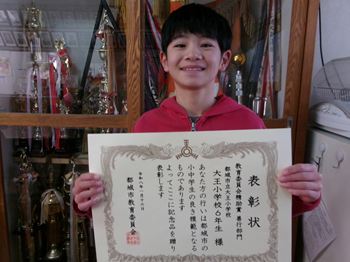 表彰状
教育委員会補助賞 善行部門
都城市立大王小学校
大王小学校6年生 様
あなた方の行いは都城市の
小中学生の良き模範となる
ものであります
よってここに記念品を贈り
表彰します
都城市教育委員会